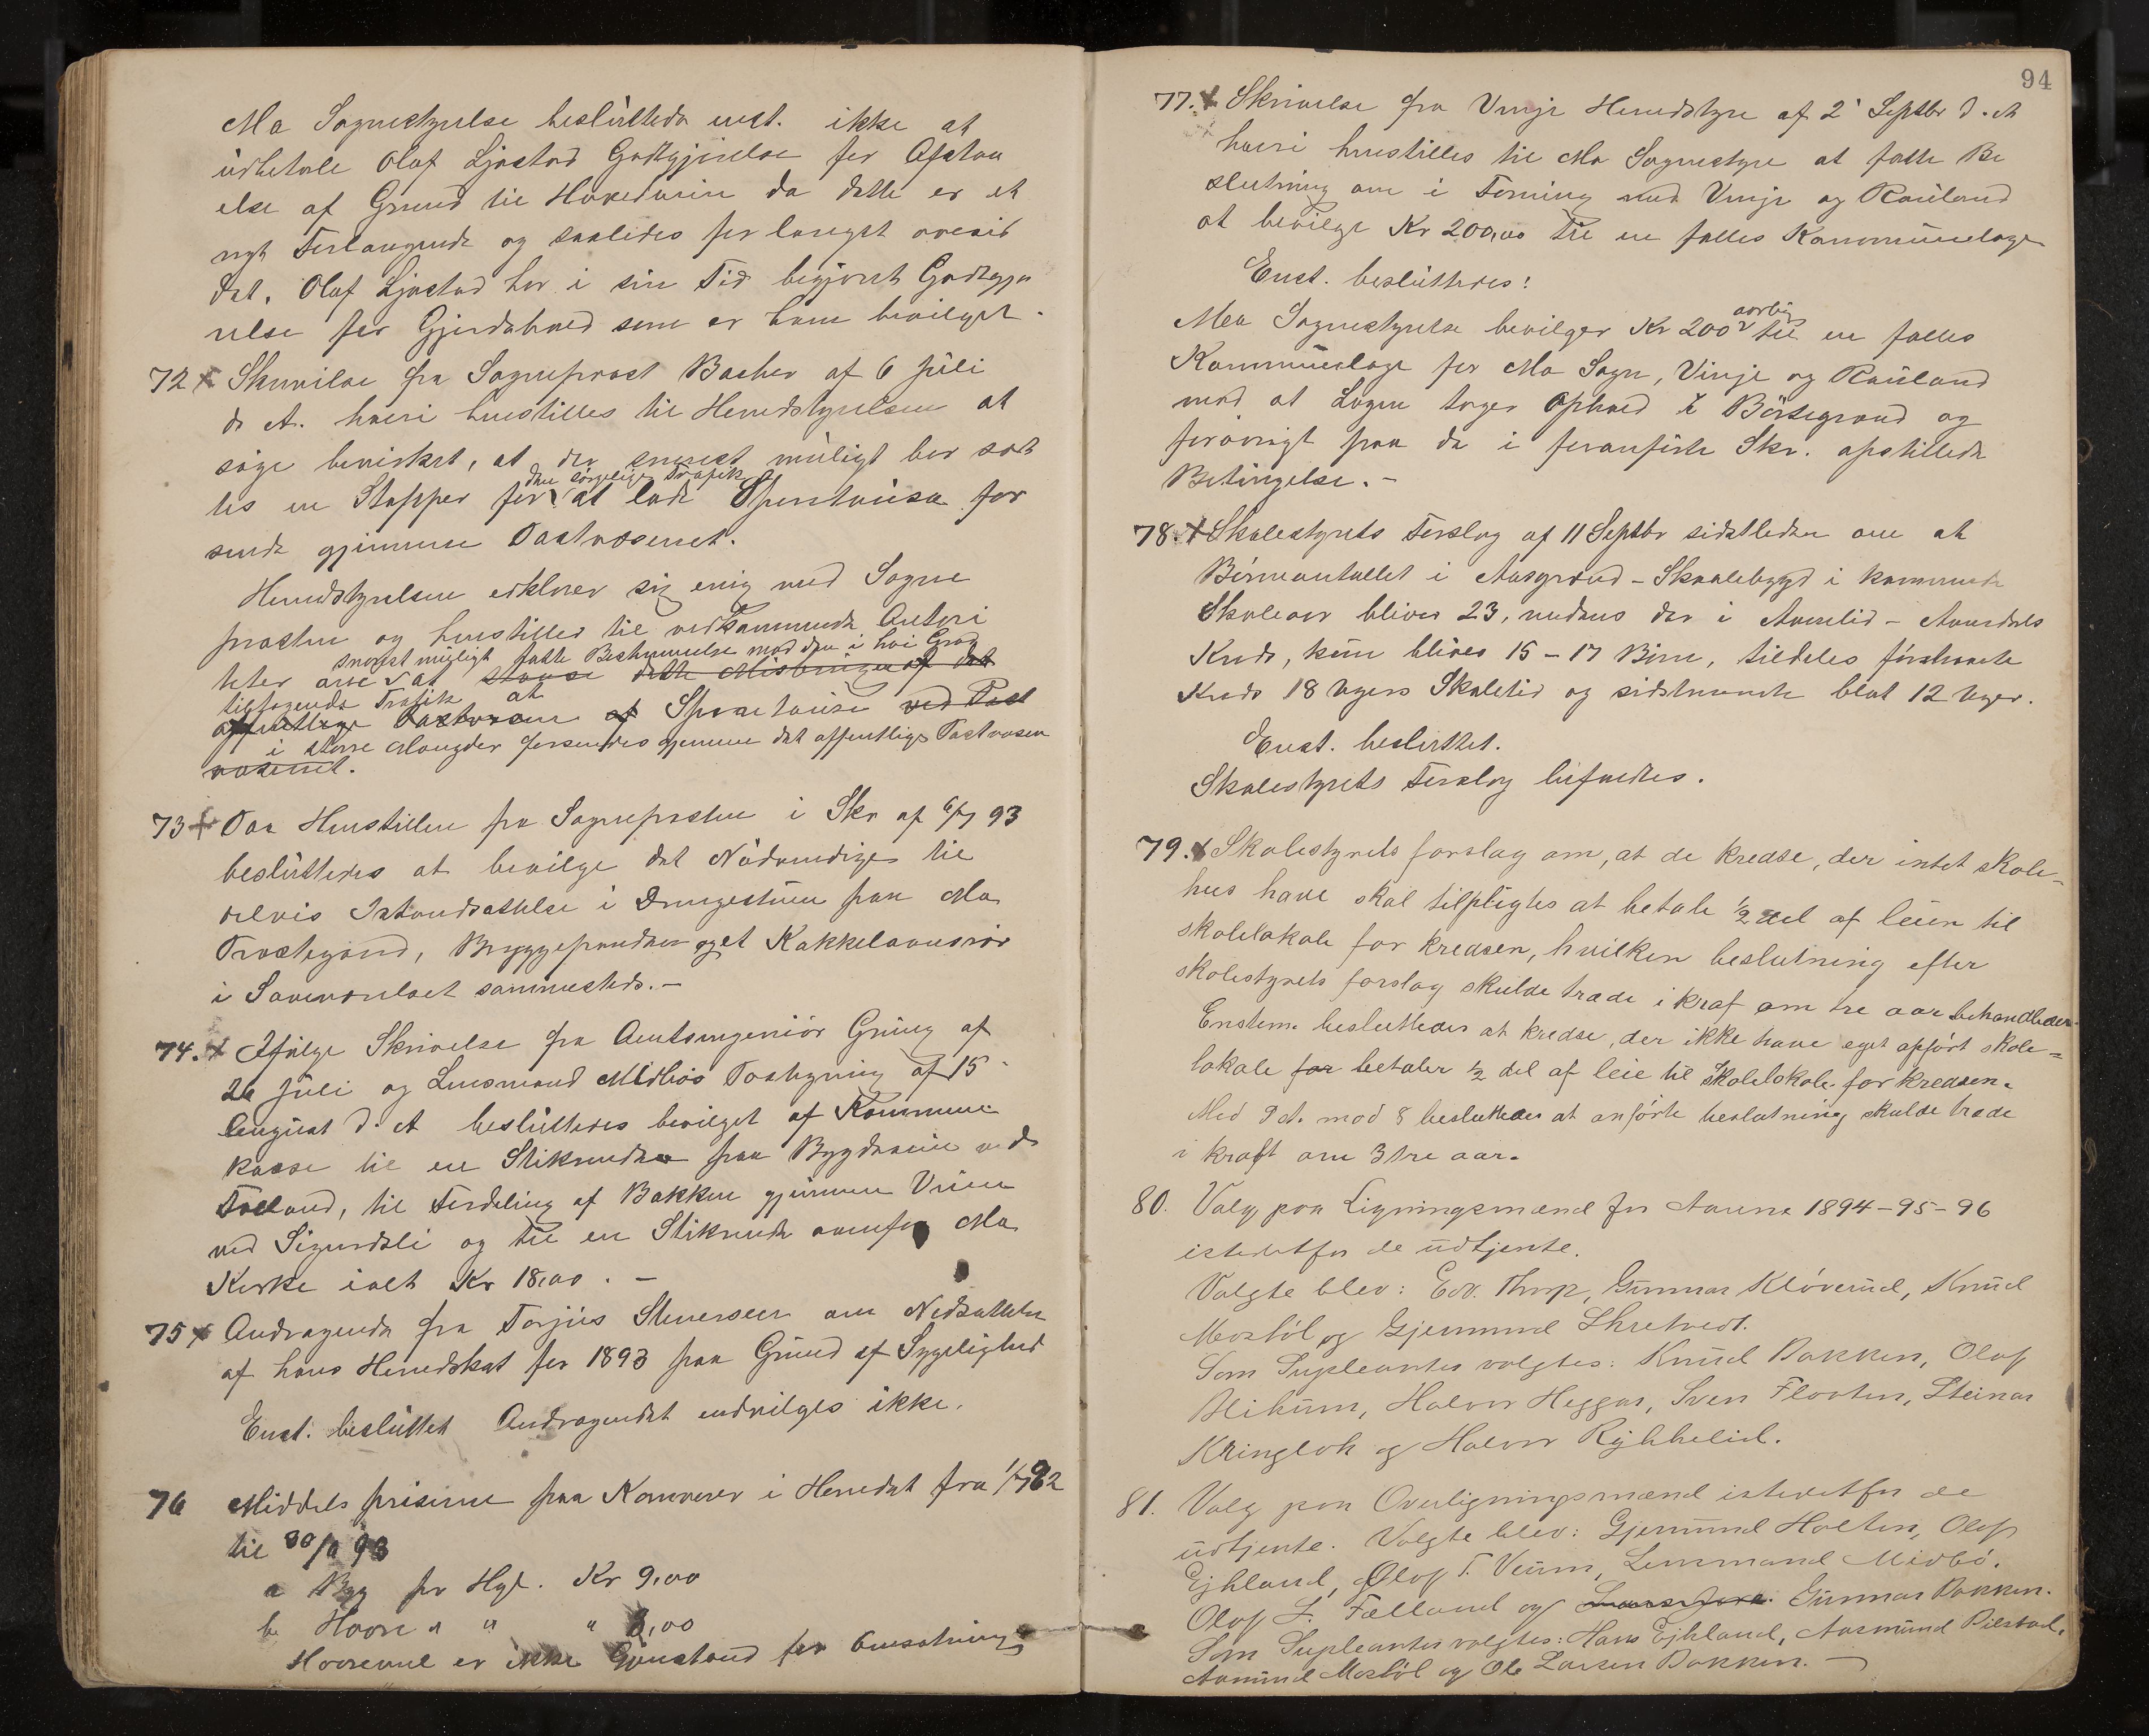 Mo Sognestyrelse besluttede enst. ikke at
udbetale Olaf Ljøstad Godtgjørelse for Afstaa
else af Grund til Hovedveien da dette er et
nyt Forlangende og saaledes for længst
det. Olaf Ljøstad har i sin Tid begjært Godtgjø
relse for Gjerdehold som er ham bevilget.
72 x Skrivelse fra Sogneprest Bacher af 6 Juli
d. A. hvori henstilles til Herredstyrelsen at
søge bevirket, at der snarest muligt bør sæt
tes en Stopper for den sørgelige Trafik at lade Spirituosa for
sende gjennem Postvæsenet.
Herredstyrelsen erklærer sig enig med Sogne
presten og henstiller til vedkommende Autori
teter snarest muligt fatte Bestemmelse mod den i høi Grad
at standse dette Misbrugen af det
Trafik at
offentlige Postvæsen af Spirituosa ved Post
i større Mængder forsendes gjennem det offentlige Postvæsen
væsenet.
73 + Paa Henstillen fra Sognepresten i Skr af 6/7 93
besluttedes at bevilge det Nødvendige til
delvis Istandsættelse i Drengestuen paa Mo
Prestegaard, Bryggepanden og et Kakkelovnsrør
i Soveværelset sammesteds. -
74. x Ifølge Skrivelse fra Amtsingeniør Grüng af
26 Juli og Lensmand Midbøs Paategning af 15
August d. A besluttedes bevilget af Kommune
kasse til en Stikrende paa Bygdeveie ved
Tolland, til Fordeling af Bakken gjennem Veien
ved Sigurdsli og til en Stikrende ovenfor Mo
Kirke ialt Kr 18,00. -
75 x Andragende fra Torjus Stenersen om Nedsættelse
af hans Herredskat for 1893 paa Grund af Sygelighed
Enst. besluttet Andragendet indvilges ikke.
76 Middelspriserne paa Kornvarer i Herredet fra 1/7 92
til 30/6 93
a Byg pr Hgl. Kr 9,00
b Havre " " " 6,00
Havremel er ikke Gjenstand for Omsætning
94
77. x Skrivelse fra Vinje Herredstyre af 2 Septbr d. A
hvori henstilles til Mo Sognestyre at fatte Be
slutning om i Forening med Vinje og Rauland
at bevilge Kr 200,00 til en fælles Kommunelæge
Enst. besluttedes:
Mo Sognestyrelse bevilger Kr 200 aarlig til en fælles
Kommunelæge for Mo Sogn, Vinje og Rauland
mod at Lægen tager Ophold i Børtegrænd og
forøvrigt paa de i foranførte Skr. opstillede
Betingelse. -
78. x Skolestyrets Forslag af 11 Septbr sidstleden om at
Børneantallet i Aasgrænd - Skaalebygd i kommende
Skoleaar bliver 23, medens der i Aamlid - Aamdals
Kreds, kun blives 15 - 17 Børn, tildeles førstnævnte
Kreds 18 Ugers Skoletid og sidstnævnte blot 12 Uger.
Enst. besluttet.
Skolestyrets Forslag bifaldes.
79. x Skolestyrets forslag om, at de kredse, der intet skole-
hus have skal tilpligtes at betale 1/2 del af leien til
skolelokale for kredsen, hvilken beslutning efter
skolestyrets forslag skulde træde i kraf om tre aar behandledes.
Enstem. besluttedes at kredse, der ikke have eget opført skole=
lokale for betaler 1/2 del af leie til skolelokale for kredsen.
Med 9 st. mod 8 besluttedes at anførte beslutning skulde træde
i kraft om 3 tre aar.
80. Valg paa Ligningsmænd for Aarene 1894-95-96
istedetfor de udtjente.
Valgte blev: Edv. Thorp, Gunnar Kløverud, Knud
Mostøl og Gjermund Skretvedt.
Som Supleanter valgtes: Knud Bakken, Olaf
Blikum, Halvor Heggar, Sven Flaaten, Steinar
Kringlok og Halvor Rykkelid.
81. Valg paa Overligningsmænd istedetfor de
udtjente. Valgte blev: Gjermund Holten, Olaf
Eykland, Olaf T. Veum, Lensmand Midbø.
Olaf L. Fælland og Gunnar Bakken.
Som Supleanter valgtes: Hans Eykland, Aasmund Pilstad,
Aamund Mostøl og Ole Larsen Bakken. -